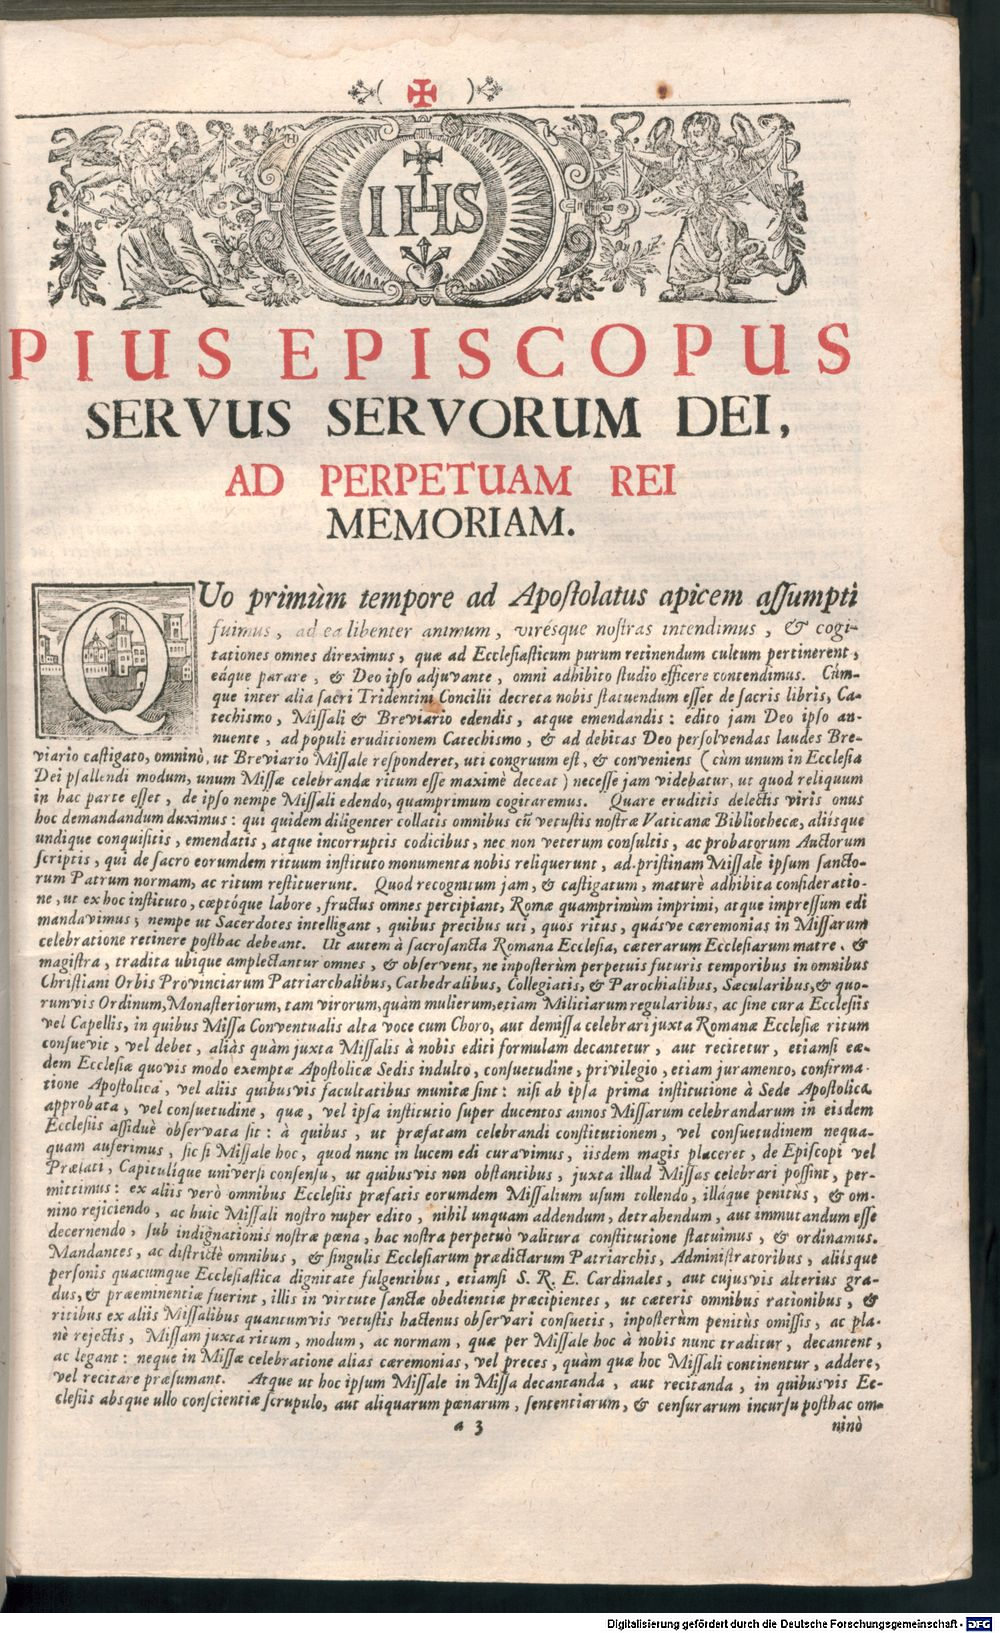 IHS
PIUS EPISCOPUS
SERVUS SERVORUM DEI,
AD PERPETUAM REI
MEMORIAM.
QUo primùm tempore ad Apostolatus apicem assumpti
fuimus, ad ea libenter animum, virésque nostras intendimus, & cogi-
tationes omnes direximus, quæ ad Ecclesiasticum purum retinendum cultum pertinerent,
eáque parare, & Deo ipso adjuvante, omni adhibito studio efficere contendimus. Cúm-
que inter alia sacri Tridentini Concilii decreta nobis statuendum esset de sacris libris, Ca-
techismo, Missali & Breviario edendis, atque emendandis: edito jam Deo ipso an-
nuente, ad populi eruditionem Catechismo, & ad debitas Deo persolvendas laudes Bre-
viario castigato, omninò, ut Breviario Missale responderet, uti congruum est, & conveniens (cùm unum in Ecclesia
Dei psallendi modum, unum Missæ celebrandæ ritum esse maximè deceat) necesse jam videbatur, ut quod reliquum
in hac parte esset, de ipso nempe Missali edendo, quamprimum cogitaremus. Quare eruditis delectis viris onus
hoc demandandum duximus: qui quidem diligenter collatis omnibus cũ vetustis nostræ Vaticanæ Bibliothecæ, aliisque
undique conquisitis, emendatis, atque incorruptis codicibus, nec non veterum consultis, ac probatorum Auctorum
scriptis, qui de sacro eorumdem rituum instituto monumenta nobis reliquerunt, ad pristinam Missale ipsum sancto-
rum Patrum normam, ac ritum restituerunt. Quod recognitum jam, & castigatum, maturè adhibita consideratio-
ne, ut ex hoc instituto, cœptóque labore, fructus omnes percipiant, Romæ quamprimùm imprimi, atque impressum edi
mandavimus; nempe ut Sacerdotes intelligant, quibus precibus uti, quos ritus, quásve cæremonias in Missarum
celebratione retinere posthac debeant. Ut autem à sacrosancta Romana Ecclesia, cæterarum Ecclesiarum matre, &
magistra, tradita ubique amplectantur omnes, & observent, ne inposterùm perpetuis futuris temporibus in omnibus
Christiani Orbis Provinciarum Patriarchalibus, Cathedralibus, Collegiatis, & Parochialibus, Sæcularibus, & quo-
rumvis Ordinum, Monasteriorum, tam virorum, quàm mulierum, etiam Militiarum regularibus, ac sine cura Ecclesiis
vel Capellis, in quibus Missa Conventualis alta voce cum Choro, aut demissa celebrari juxta Romanæ Ecclesiæ ritum
consuevit, vel debet, aliàs quàm juxta Missalis à nobis editi formulam decantetur, aut recitetur, etiamsi eæ-
dem Ecclesiæ quovis modo exemptæ Apostolicæ Sedis indulto, consuetudine, privilegio, etiam juramento, confirma-
tione Apostolica, vel aliis quibusvis facultatibus munitæ sint: nisi ab ipsa prima institutione à Sede Apostolica
approbata, vel consuetudine, quæ, vel ipsa institutio super ducentos annos Missarum celebrandarum in eisdem
Ecclesiis assiduè observata sit: à quibus, ut præfatam celebrandi constitutionem, vel consuetudinem nequa-
quam auferimus, sic si Missale hoc, quod nunc in lucem edi curavimus, iisdem magis placeret, de Episcopi vel
Prælati, Capitulíque universi consensu, ut quibusvis non obstantibus, juxta illud Missas celebrari possint, per-
mittimus: ex aliis verò omnibus Ecclesiis præfatis eorumdem Missalium usum tollendo, illáque penitus, & om-
nino rejiciendo, ac huic Missali nostro nuper edito, nihil unquam addendum, detrahendum, aut immutandum esse
decernendo, sub indignationis nostræ pœna, hac nostra perpetuò valitura constitutione statuimus, & ordinamus.
Mandantes, ac districtè omnibus, & singulis Ecclesiarum prædictarum Patriarchis, Administratoribus, aliisque
personis quacumque Ecclesiastica dignitate fulgentibus, etiamsi S. R. E. Cardinales, aut cujusvis alterius gra-
dus, & præeminentiæ fuerint, illis in virtute sanctæ obedientiæ præcipientes, ut cæteris omnibus rationibus, &
ritibus ex aliis Missalibus quantumvis vetustis hactenus observari consuetis, inposterùm penitùs omissis, ac pla-
nè rejectis, Missam juxta ritum, modum, ac normam, quæ per Missale hoc à nobis nunc traditur, decantent,
ac legant: neque in Missæ celebratione alias cæremonias, vel preces, quàm quæ hoc Missali continentur, addere,
vel recitare præsumant. Atque ut hoc ipsum Missale in Missa decantanda, aut recitanda, in quibusvis Ec-
clesiis absque ullo conscientiæ scrupulo, aut aliquarum pœnarum, sententiarum, & censurarum incursu posthac om-
a 3 ninò
Digitalisierung gefördert durch die Deutsche Forschungsgemeinschaft - DFG